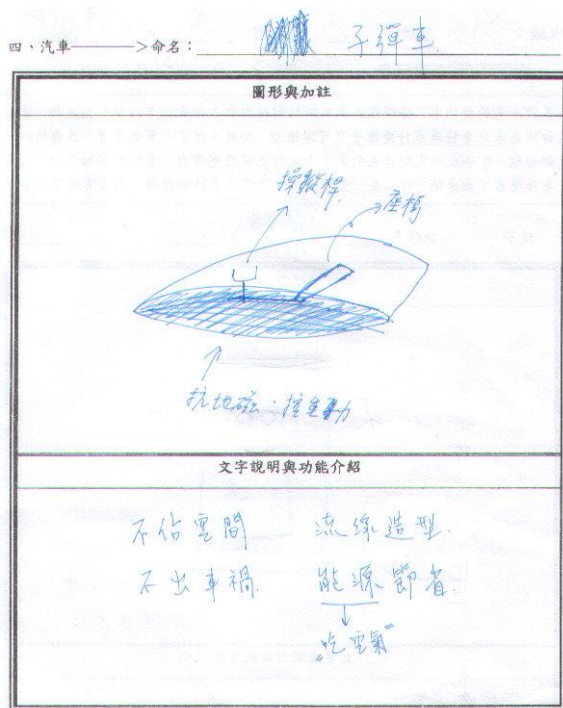 四、汽車————>命名：子彈車
圖形與加註
操縱桿
座椅
抗地磁、控重力
文字說明與功能介紹
不佔空間 流線造型.
不出車禍. 能源節省.
"吃空氣"